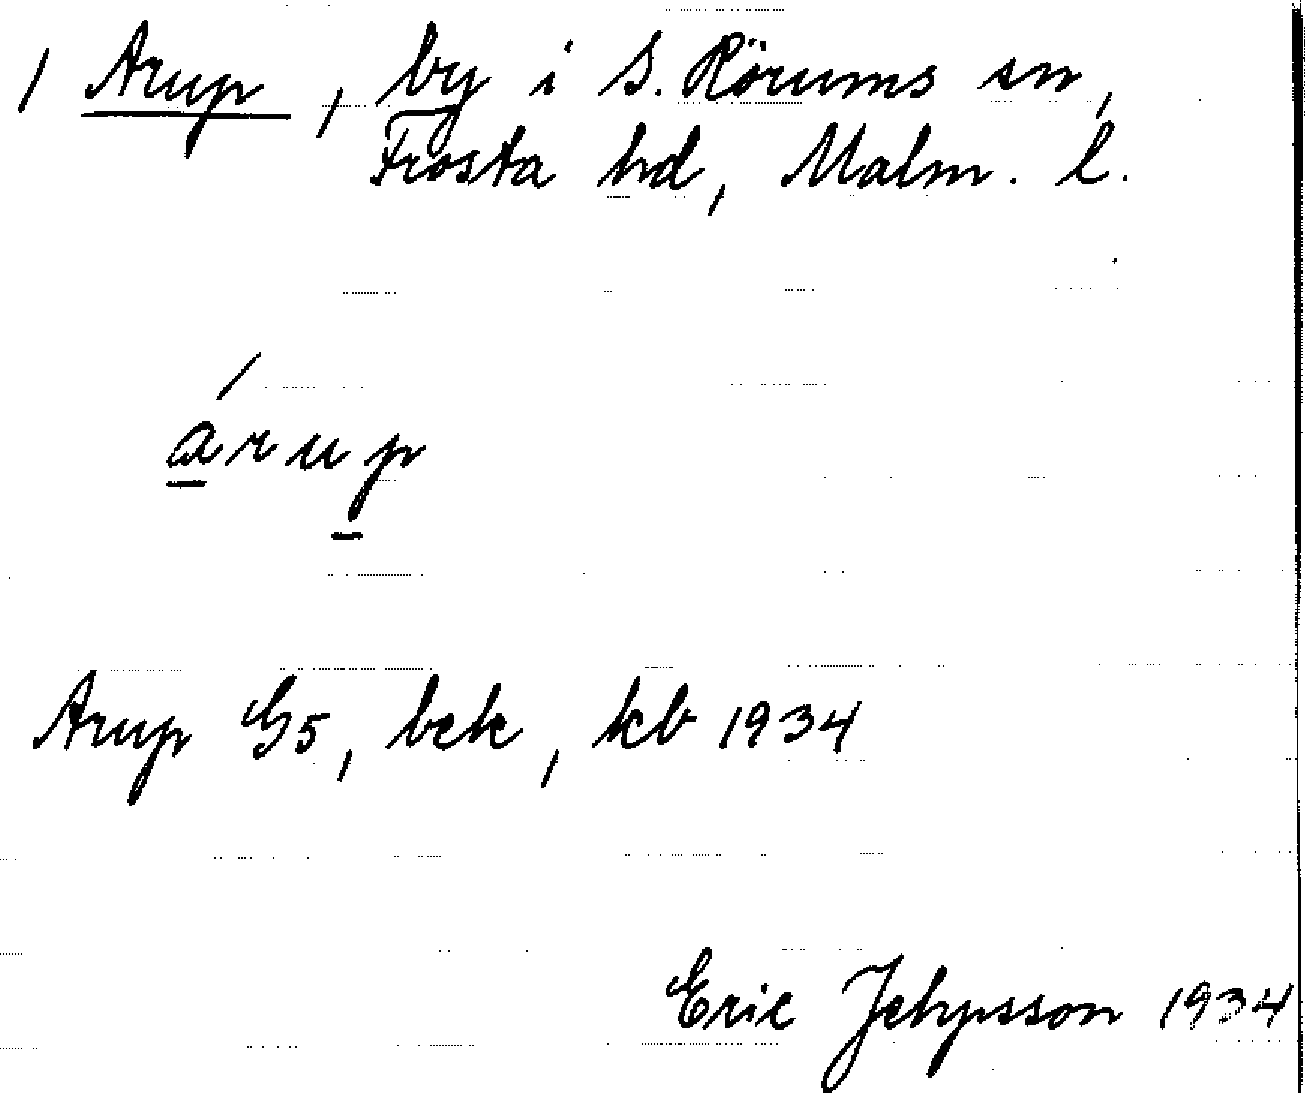 1 Arup, by i S. Rörums sn,
Frosta hd, Malm. l.
árup
Arup G5, bek, kb 1934
Eric Jehpsson 1934